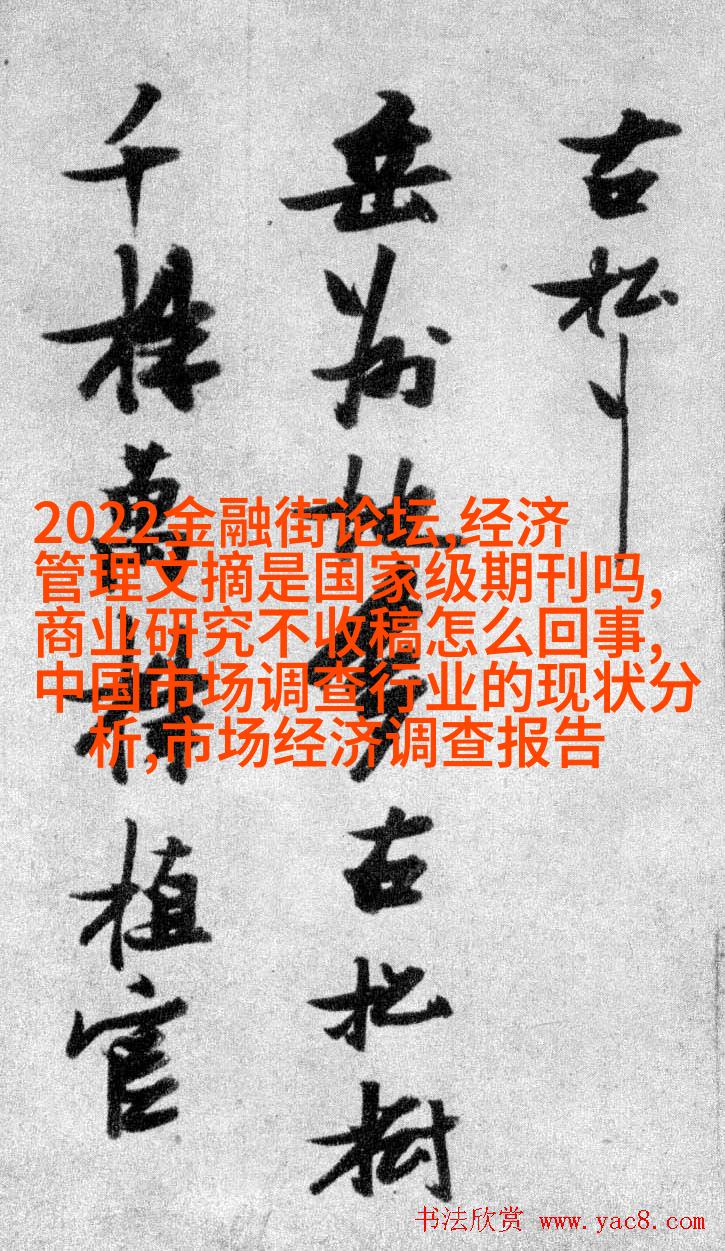 古松
岳州地多古松樹
千株萬株植官
2022金融街论坛,经济
管理文摘是国家级期刊吗,
商业研究不收稿怎么回事,
中国市场调查行业的现状分
析,市场经济调查报告
书法欣赏 www.yac8.com